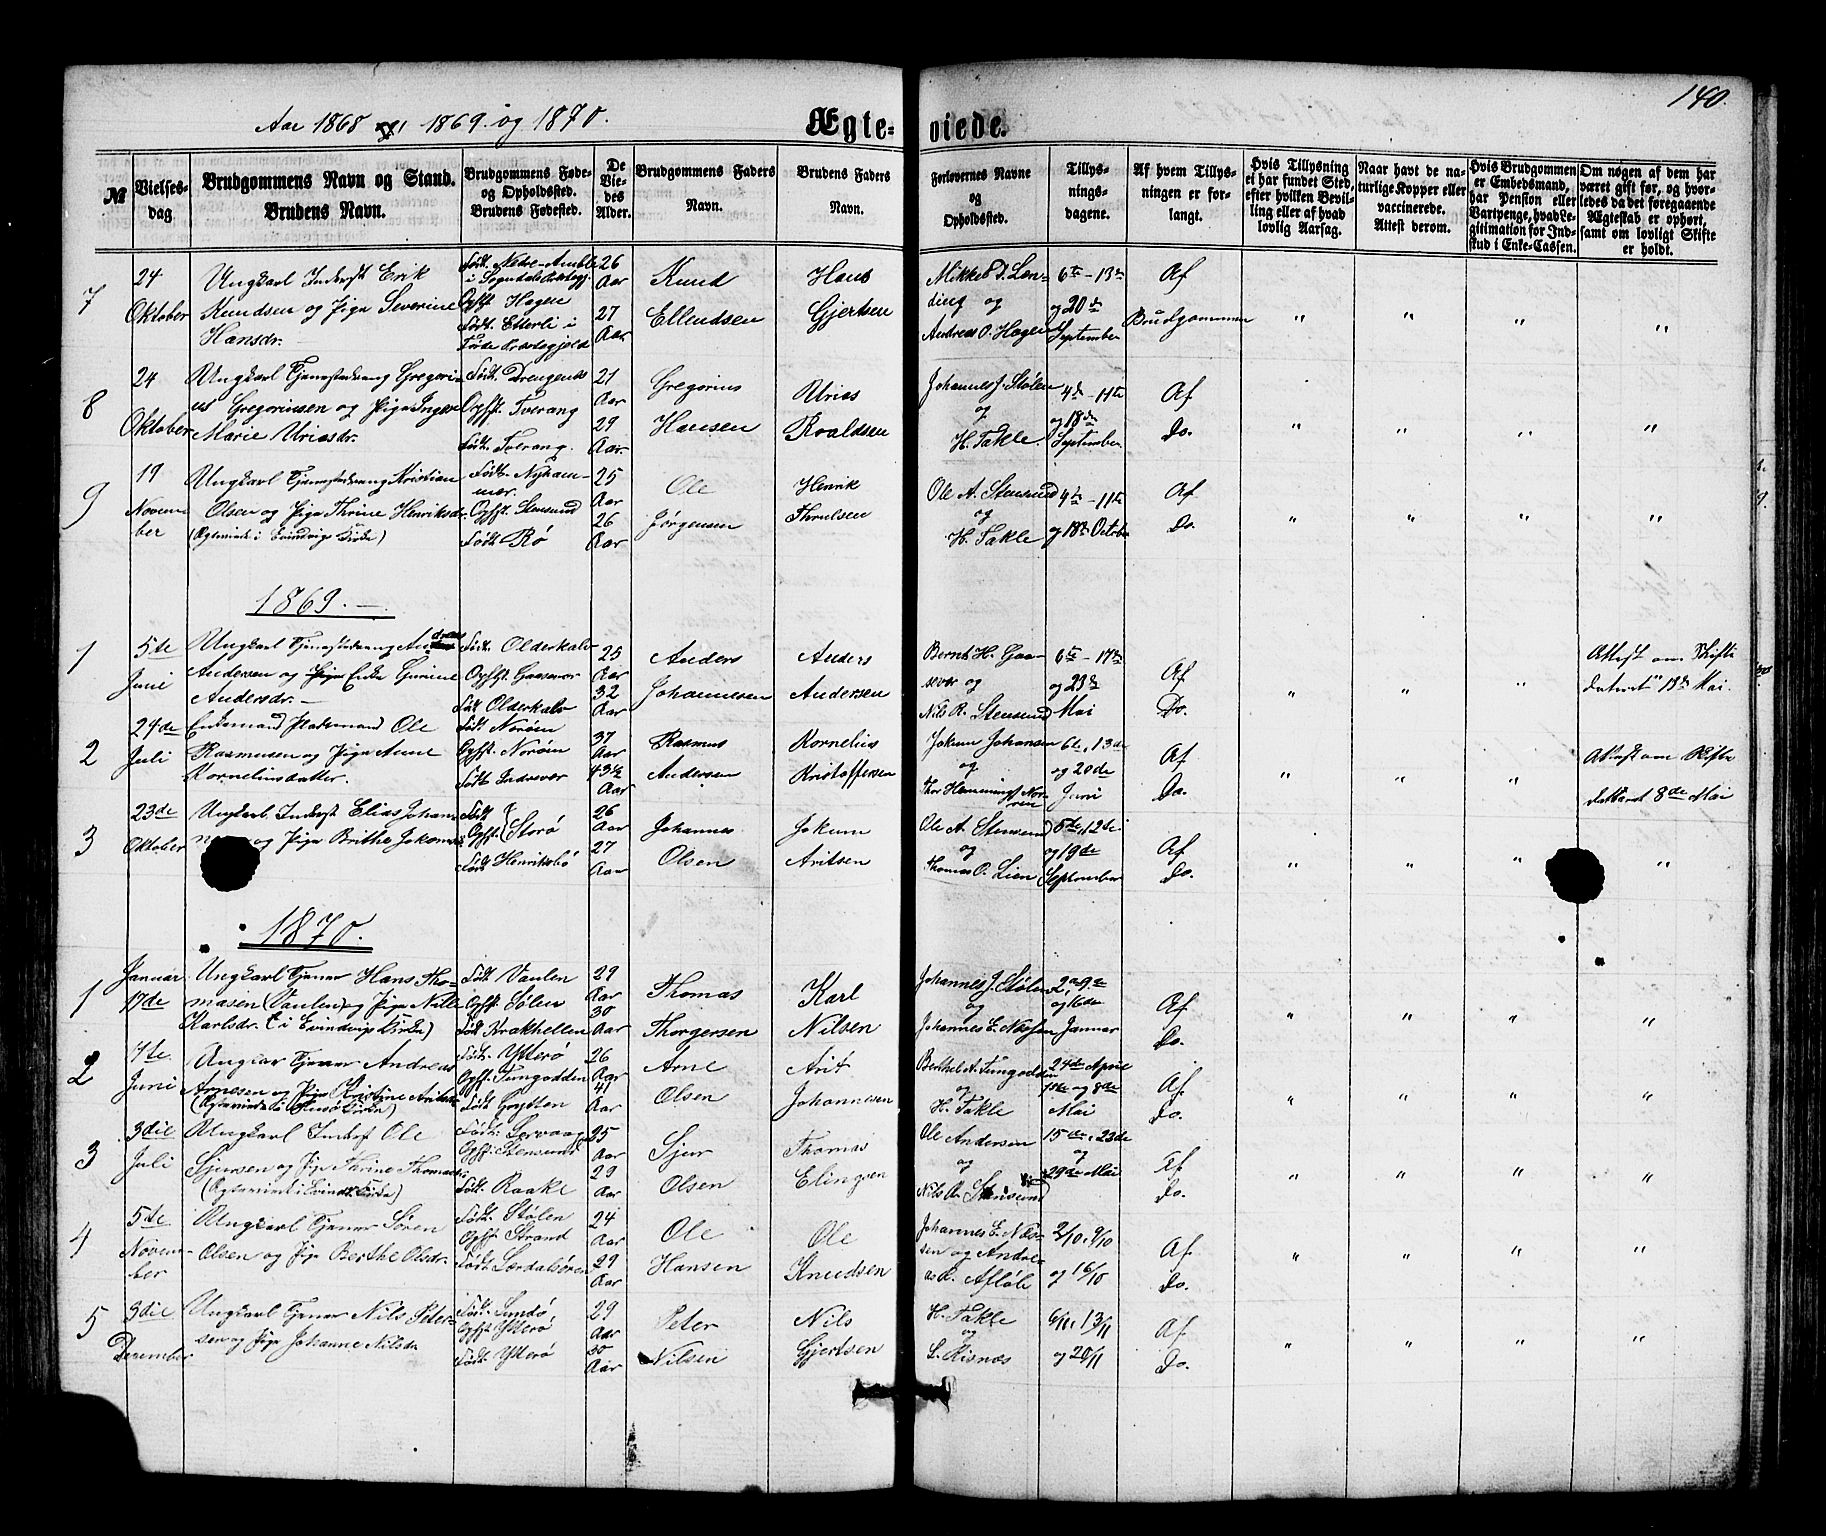 140.
Aar 1868 1869. og 1870.
Ægte-viede.
№
Vielses-dag.
Brudgommens Navn og Stand. Brudens Navn.
Brudgommens Føde- og Opholdssted. Brudens Fødested.
De Viedes Alder.
Brudgommens Faders Navn.
Brudens Faders Navn.
Forlovernes Navne og Opholdssted.
Tillysningsdagene.
Af hvem Tillysningen er forlangt.
Hvis Tillysning ei har fundet Sted, efter hvilken Bevilling eller af hvad lovlig Aarsag.
Naar havt de naturlige Kopper eller vaccinerede. Attest derom.
Hvis Brudgommen er Embedsmand, har Pension eller Vartpenge, hvad Legitimation for Indskud i Enke-Cassen.
Om nogen af dem har været gift før, og hvorledes da det foregaaende Ægteskab er ophørt, samt om lovligt Skifte er holdt.
7
24 Oktober
Ungkarl Inderst Erik
Knudsen og Pige Severine
Hansdr.
Födt. Nedre-Amble
i Sogndals Præstegj.
Opht. Hagen
Födt. Etterli i
Förde Præstegjeld
26 Aar
27 Aar
Knud
Ellendsen
Hans
Gjertsen
Mikkel D. Lending og
Andreas O. Hagen
6te - 13de
og 20de
September
Af
Brudgommen
" " " "
8
24 Oktober
Ungkarl Tjenestedreng Gregorius
Gregoriussen og Pige Inger
Marie Uriasdr.
Födt. Drengenes
Opht. Tverang
Födt. Tverang.
21 Aar
29 Aar
Gregorius
Hansen
Urias
Roaldsen
Johannes J. Stølen
og
H. Takle.
4de - 11te
og 18de
September
Af
Do.
" " " "
9
19 November
Ungkarl Tjenestedreng Kristian
Olsen og Pige Thrine Henriksdr.
(Ægteviede i Evindvigs Kirke)
Födt. Nyhammer.
Opht. Stensund
Födt. Rö
25 Aar
26 Aar
Ole
Jørgensen
Henrik
Thrulsen
Ole A. Stensund
og
H. Takle
4de - 11te
og 18de October
Af
Do.
" " " "
1869.
1
5te Juni
Ungkarl Tjenestedreng Andreas
Andersen og Enke Gurine
Andersdr.
Födt. Olderkalv
Opht. Gaasevær
Födt. Olderkalv
25 Aar
32 Aar
Anders
Johannesen
Anders
Andersen
Bernt H. Gaasevær og
Nils R. Stensund
6te - 17de
og 23de
Mai
Af
Do.
" " "
Attest om Skifte
dateret 13de Mai.
2
24de Juli
Enkemand Pladsmand Ole
Rasmusen og Pige Anne
Korneliusdatter.
Födt Noröen
Opht. Noröen
Födt. Indrevær
37 Aar
43½ Aar
Rasmus
Andersen
Kornelius
Kristoffersen
Jokum Johansen
og
Thor Hemmings
6te, 13de
og 20de
Juni
Af
Do.
" " "
Attest om Skifte
datteret 8de Mai
3
23de Oktober
Ungkarl. Inderst Elias Johannesen
og Pige Brithe Jokums
Födt.
Opht. Storö
Födt Henriksbö
26 Aar
27 Aar
Johannes
Olsen
Jokum
Aritsen
Ole A. Stensund
og
Thomas O. Lien
5te, 12de
og 19de
September
Af
Do.
" " "
1870.
1
Januar 17de
Ungkarl Tjener Hans Thomasen
(Vaulen) og Pige Nille
Karlsdr. (i Evindvigs Kirke)
Födt Vaulen
Opht. Sölen
Födt Krakhellen
29 Aar
30 Aar
Thomas
Thorgersen
Karl
Nilsen
Johannes J. Stølen
og
Johannes E. Næssen
2, 9de
og 16de
Januar
Af
Do.
" " " "
2
4te Juni
Ungkar Tjener Andreas
Arnesen og Pige Kristine Aritsdr
(Ægteviede i Husö Kirke)
Födt. Ytterö
Opht. Tungodden
Födt
26 Aar
41 Aar
Arne
Olsen
Arit
Johannesen
Berthel A. Tungodden
og
H. Takle
24de April
1ste og 8de
Mai
Af.
Do.
" " " "
3
3die Juli
Ungkarl Inderst Ole
Sjursen og Pige Thrine Thomasdr
(Ægteviede i Evindv. Kirke)
Födt. Leervaag
Opht. Stensund
Födt. Raake
25 Aar
29 Aar
Sjur
Olsen
Thomas
Elingsen
Ole Andersen
og
Nils R. Stensund
15de, 23de
og
29de Mai
Af
Do.
" " " "
4
5te November
Ungkarl Tjener Sören
Olsen og Pige Berthe Olsdr.
Födt. Stølen
Opht. Strand
Födt. Lærdalsören
24 Aar
29 Aar
Ole
Hansen
Ole
Knudsen
Johannes E. Næssen
og Andreas
R. Aflöb
2/10, 9/10
og 16/10
Af.
Do.
" " " "
5
3die December
Ungkarl Tjener Nils Petersen
og Pige Johanne Nilsdr
Födt. Sundö
Opht. Ytterö
Födt. Ytterö
29 Aar
30 Aar
Peter
Nilsen
Nils
Gjertsen
H. Takle
og
L. Risnæs
6/11, 13/11
og 20/11
Af.
Do.
" " " "